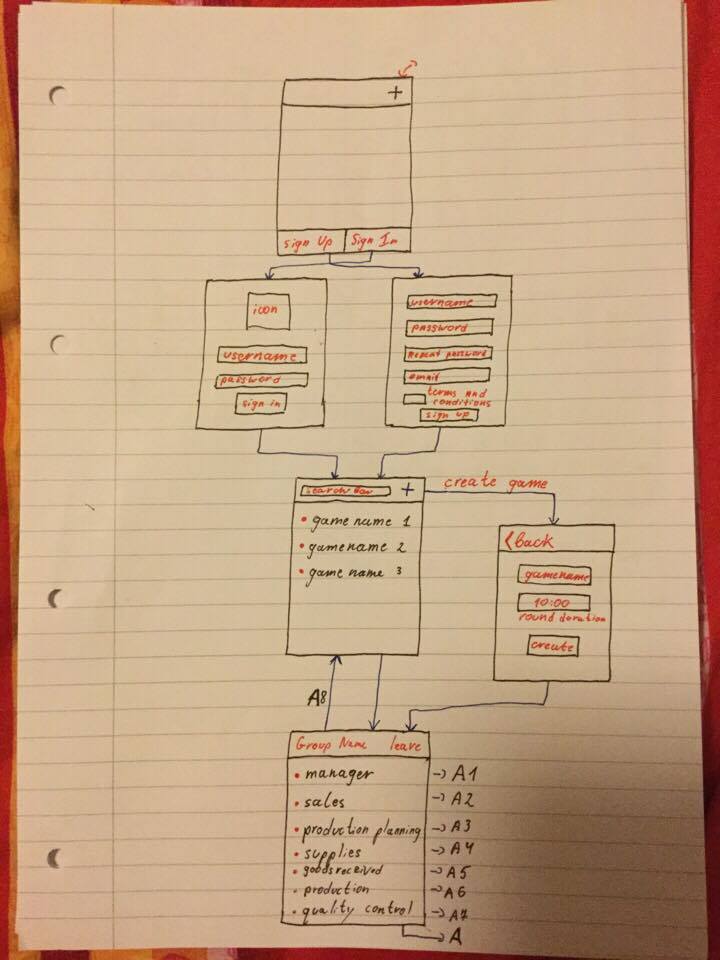 +
sign Up Sign In
icon
username
password
sign in
username
password
Repeat password
email
terms and
conditions
sign up
search bar +
create game
• game name 1
• game name 2
• game name 3
<Back
gamename
10:00
round duration
create
A8
Group Name leave
• manager → A1
• sales → A2
• production planning → A3
• supplies → A4
• goods received → A5
• production → A6
• quality control → A7
A